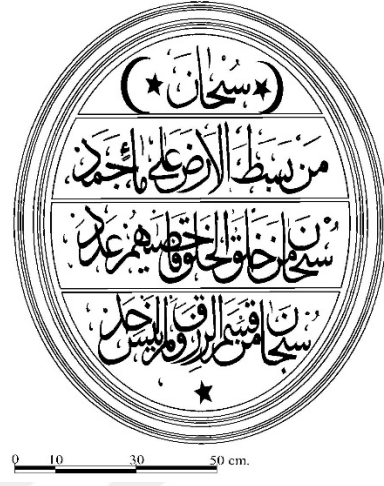 سبحان
من بسط الأرض على ماء جمد
سبحان من خلق الخلق فاحصيهم عدد
سبحان من قسم الرزق ولم ينس احد
0 10 30 50 cm.